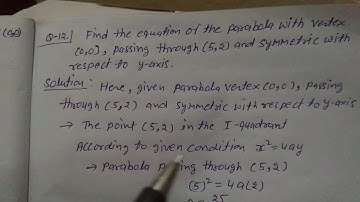 Q-12.| Find the equation of the parabola with vertex
(0,0), passing through (5,2) and symmetric with
respect to y-axis.
Solution: Here, given parabola vertex (0,0), passing
through (5,2) and symmetric with respect to y-axis
→ The point (5,2) in the I-quadrant
According to given condition x² = 4ay
→ Parabola passing through (5,2)
(5)² = 4a(2)
25